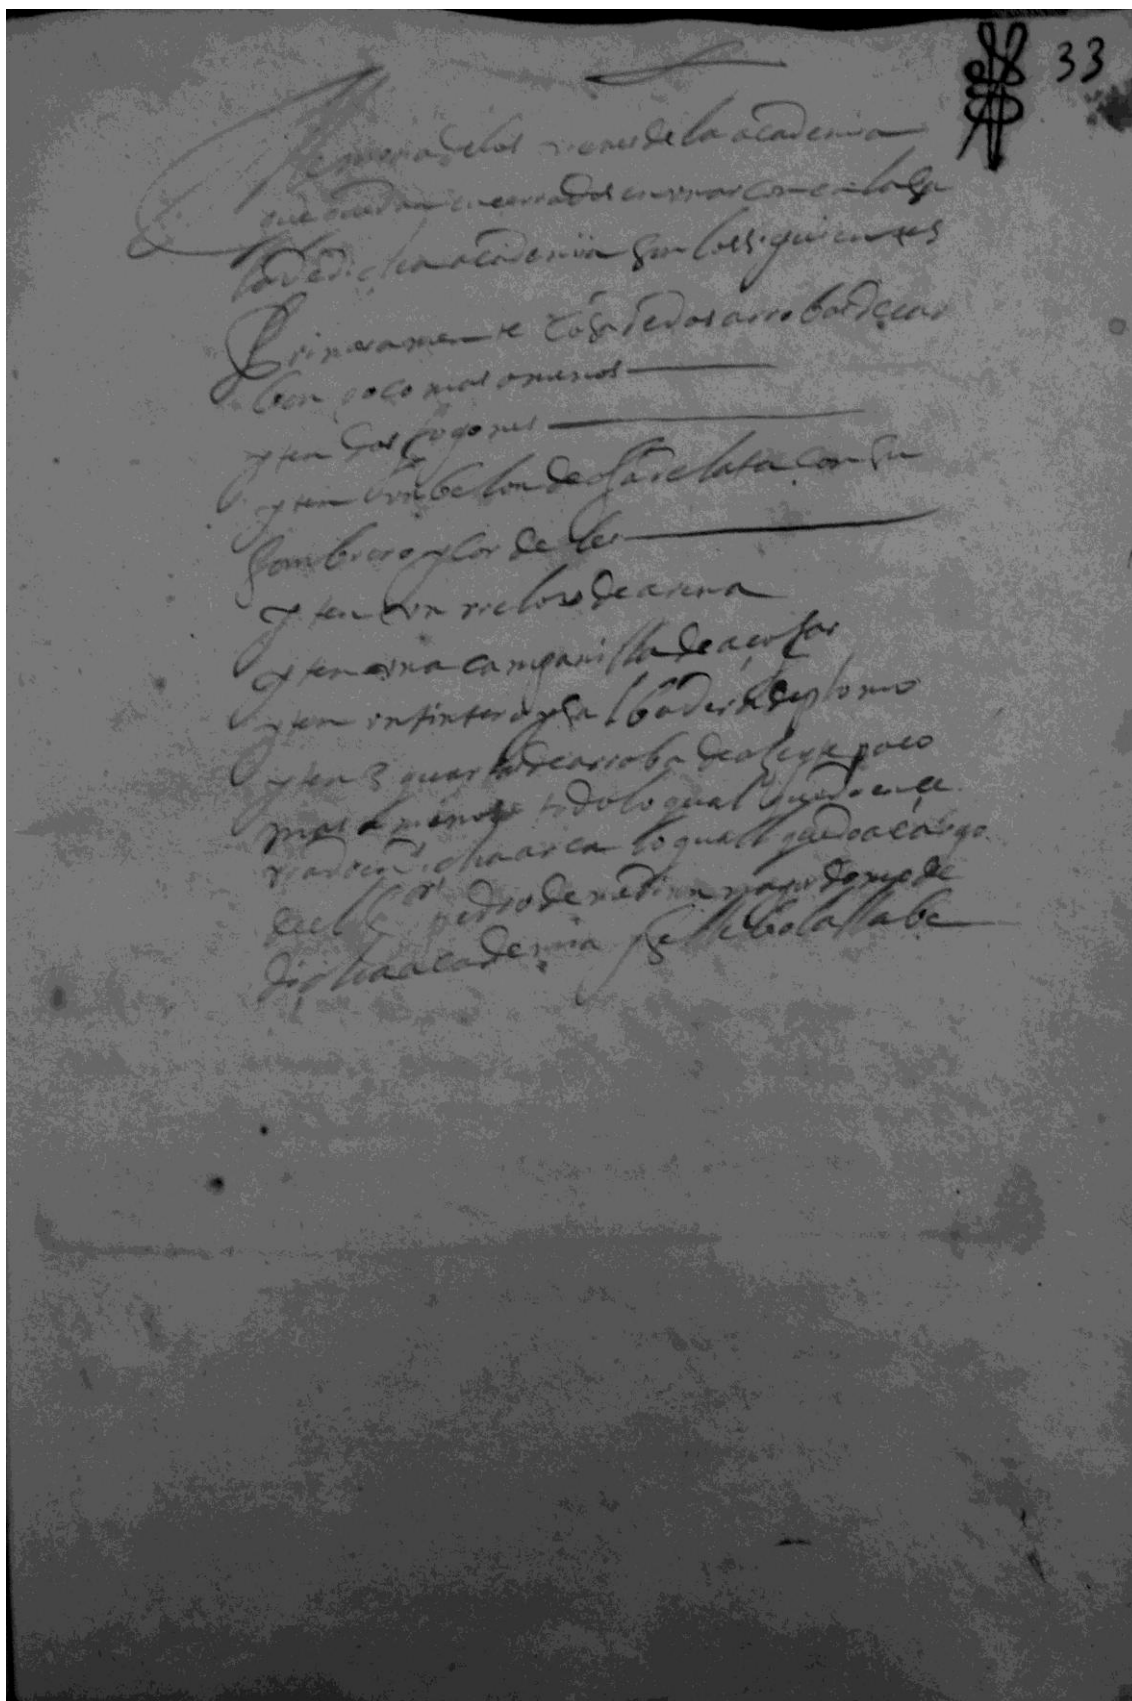 33
Memoria de los vienes de la academia
que quedan encerrados en un arca en la sa
la de dicha academia son los siguientes
Primeramente cosa de dos arrobas de car
bon poco mas o menos
yten dos fogones
yten un belon de oja de lata con su
sombrero y lor de
yten un relox de arena
yten una campanilla de açofar
yten un tintero y salbadera de plomo
yten 3 quartos de arroba de aseyte poco
mas o menos todo lo qual quedo ence
rado en dicha arca lo qual quedo a cargo
del Sor pedro de medina mayordomo de
dicha academia se llebo la llabe